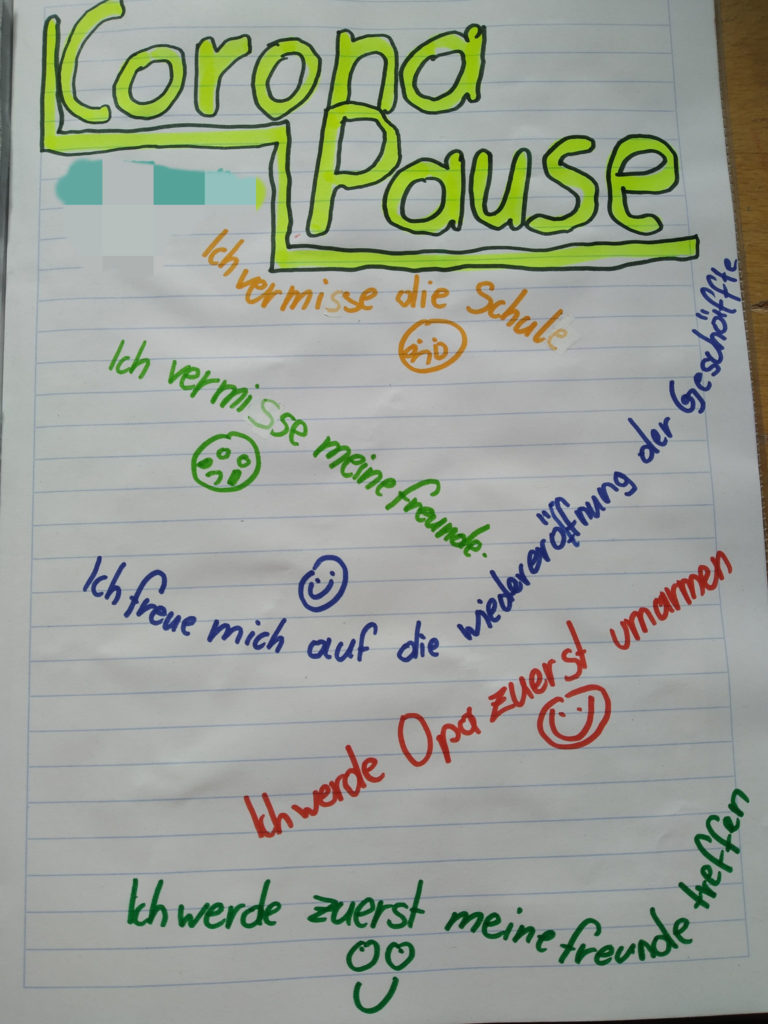 Corona
Pause
Ich vermisse die Schule
Ich vermisse meine freunde.
Ich freue mich auf die wiedereröffnung der Geschäffte
Ich werde Opa zuerst umarmen
Ich werde zuerst meine freunde treffen